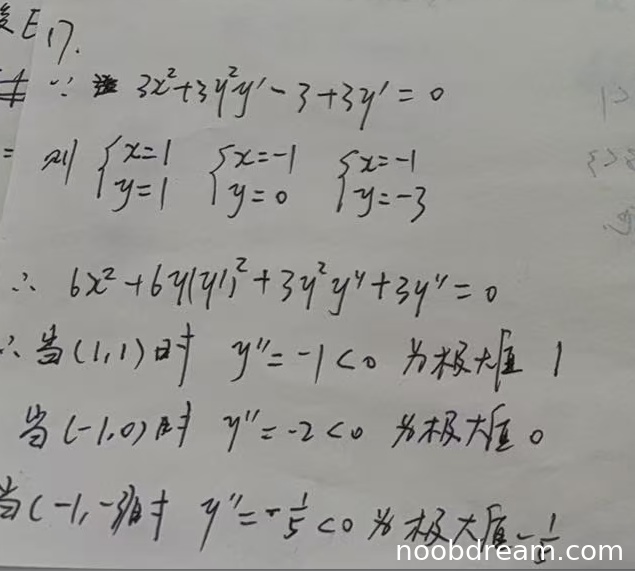 E17.
∵ 3x²+3y²y'-3+3y'=0
= 则 {x=1 y=1 {x=-1 y=0 {x=-1 y=-3
∴ 6x²+6y(y')²+3y²y''+3y''=0
∴ 当(1,1)时 y''=-1<0 为极大值 1
当(-1,0)时 y''=-2<0 为极大值 0
当(-1,-3)时 y''=-1/5<0 为极大值-1/5
noobdream.com